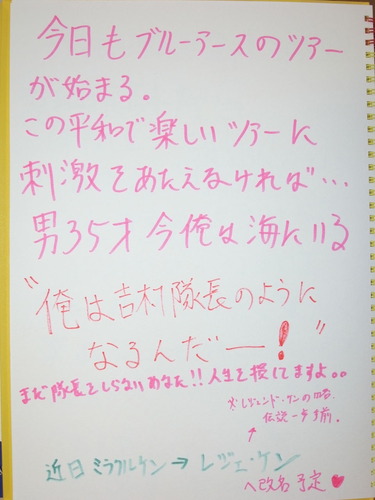 今日もブルーアースのツアー
が始まる。
この平和で楽しいツアーに
刺激をあたえなければ…
男35才 今俺は海にいる
"俺は吉村隊長のように
なるんだー!"
まだ隊長をしらないあなた!!人生を損してますよ。。
※レジェンド・ケンの略。
伝説一歩手前。
近日 ミラクルケン→レジェ・ケン
へ改名予定♥